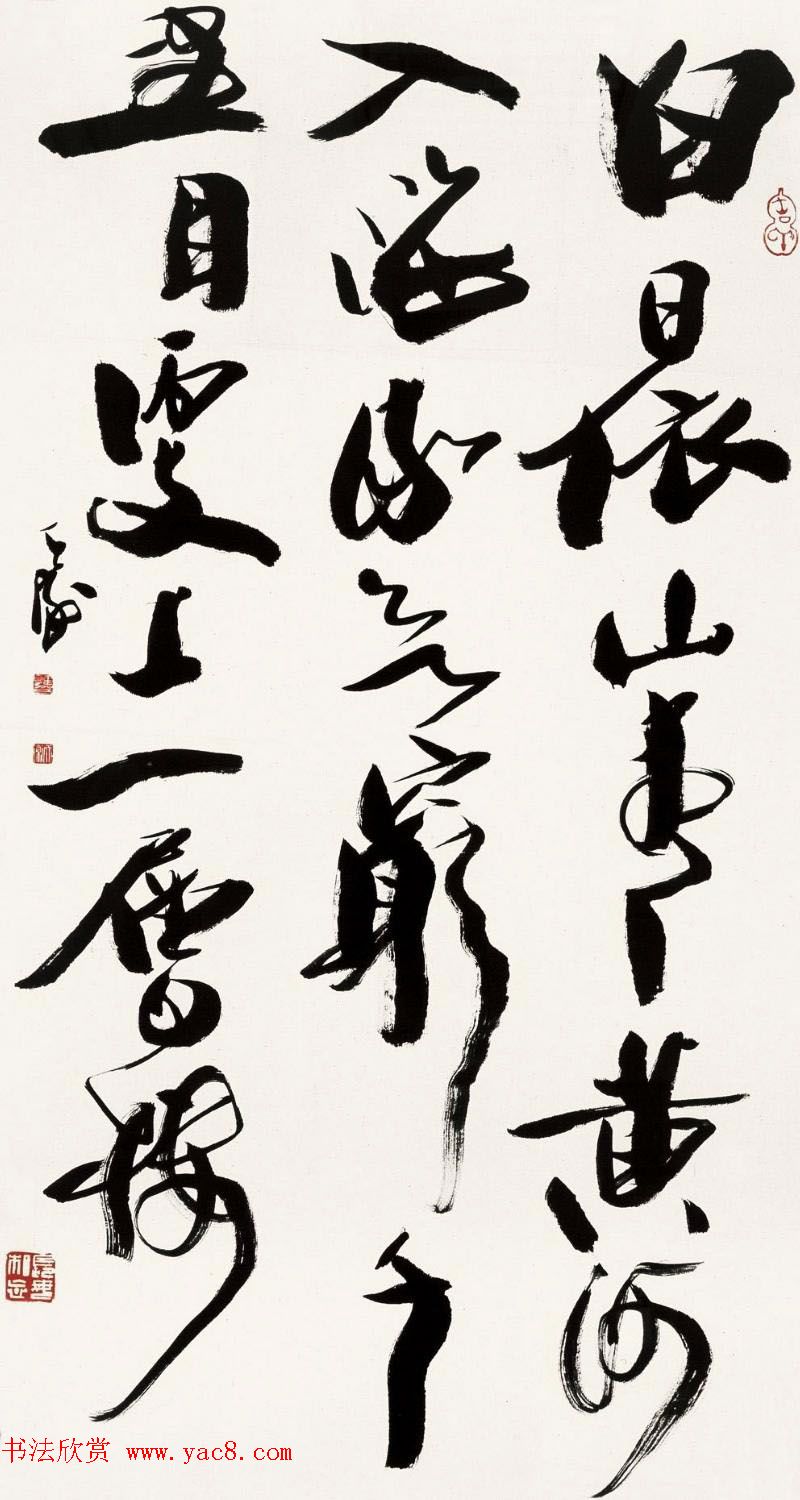 白日依山盡黄河
入海流欲窮千
里目更上一層樓
书法欣赏 www.yac8.com